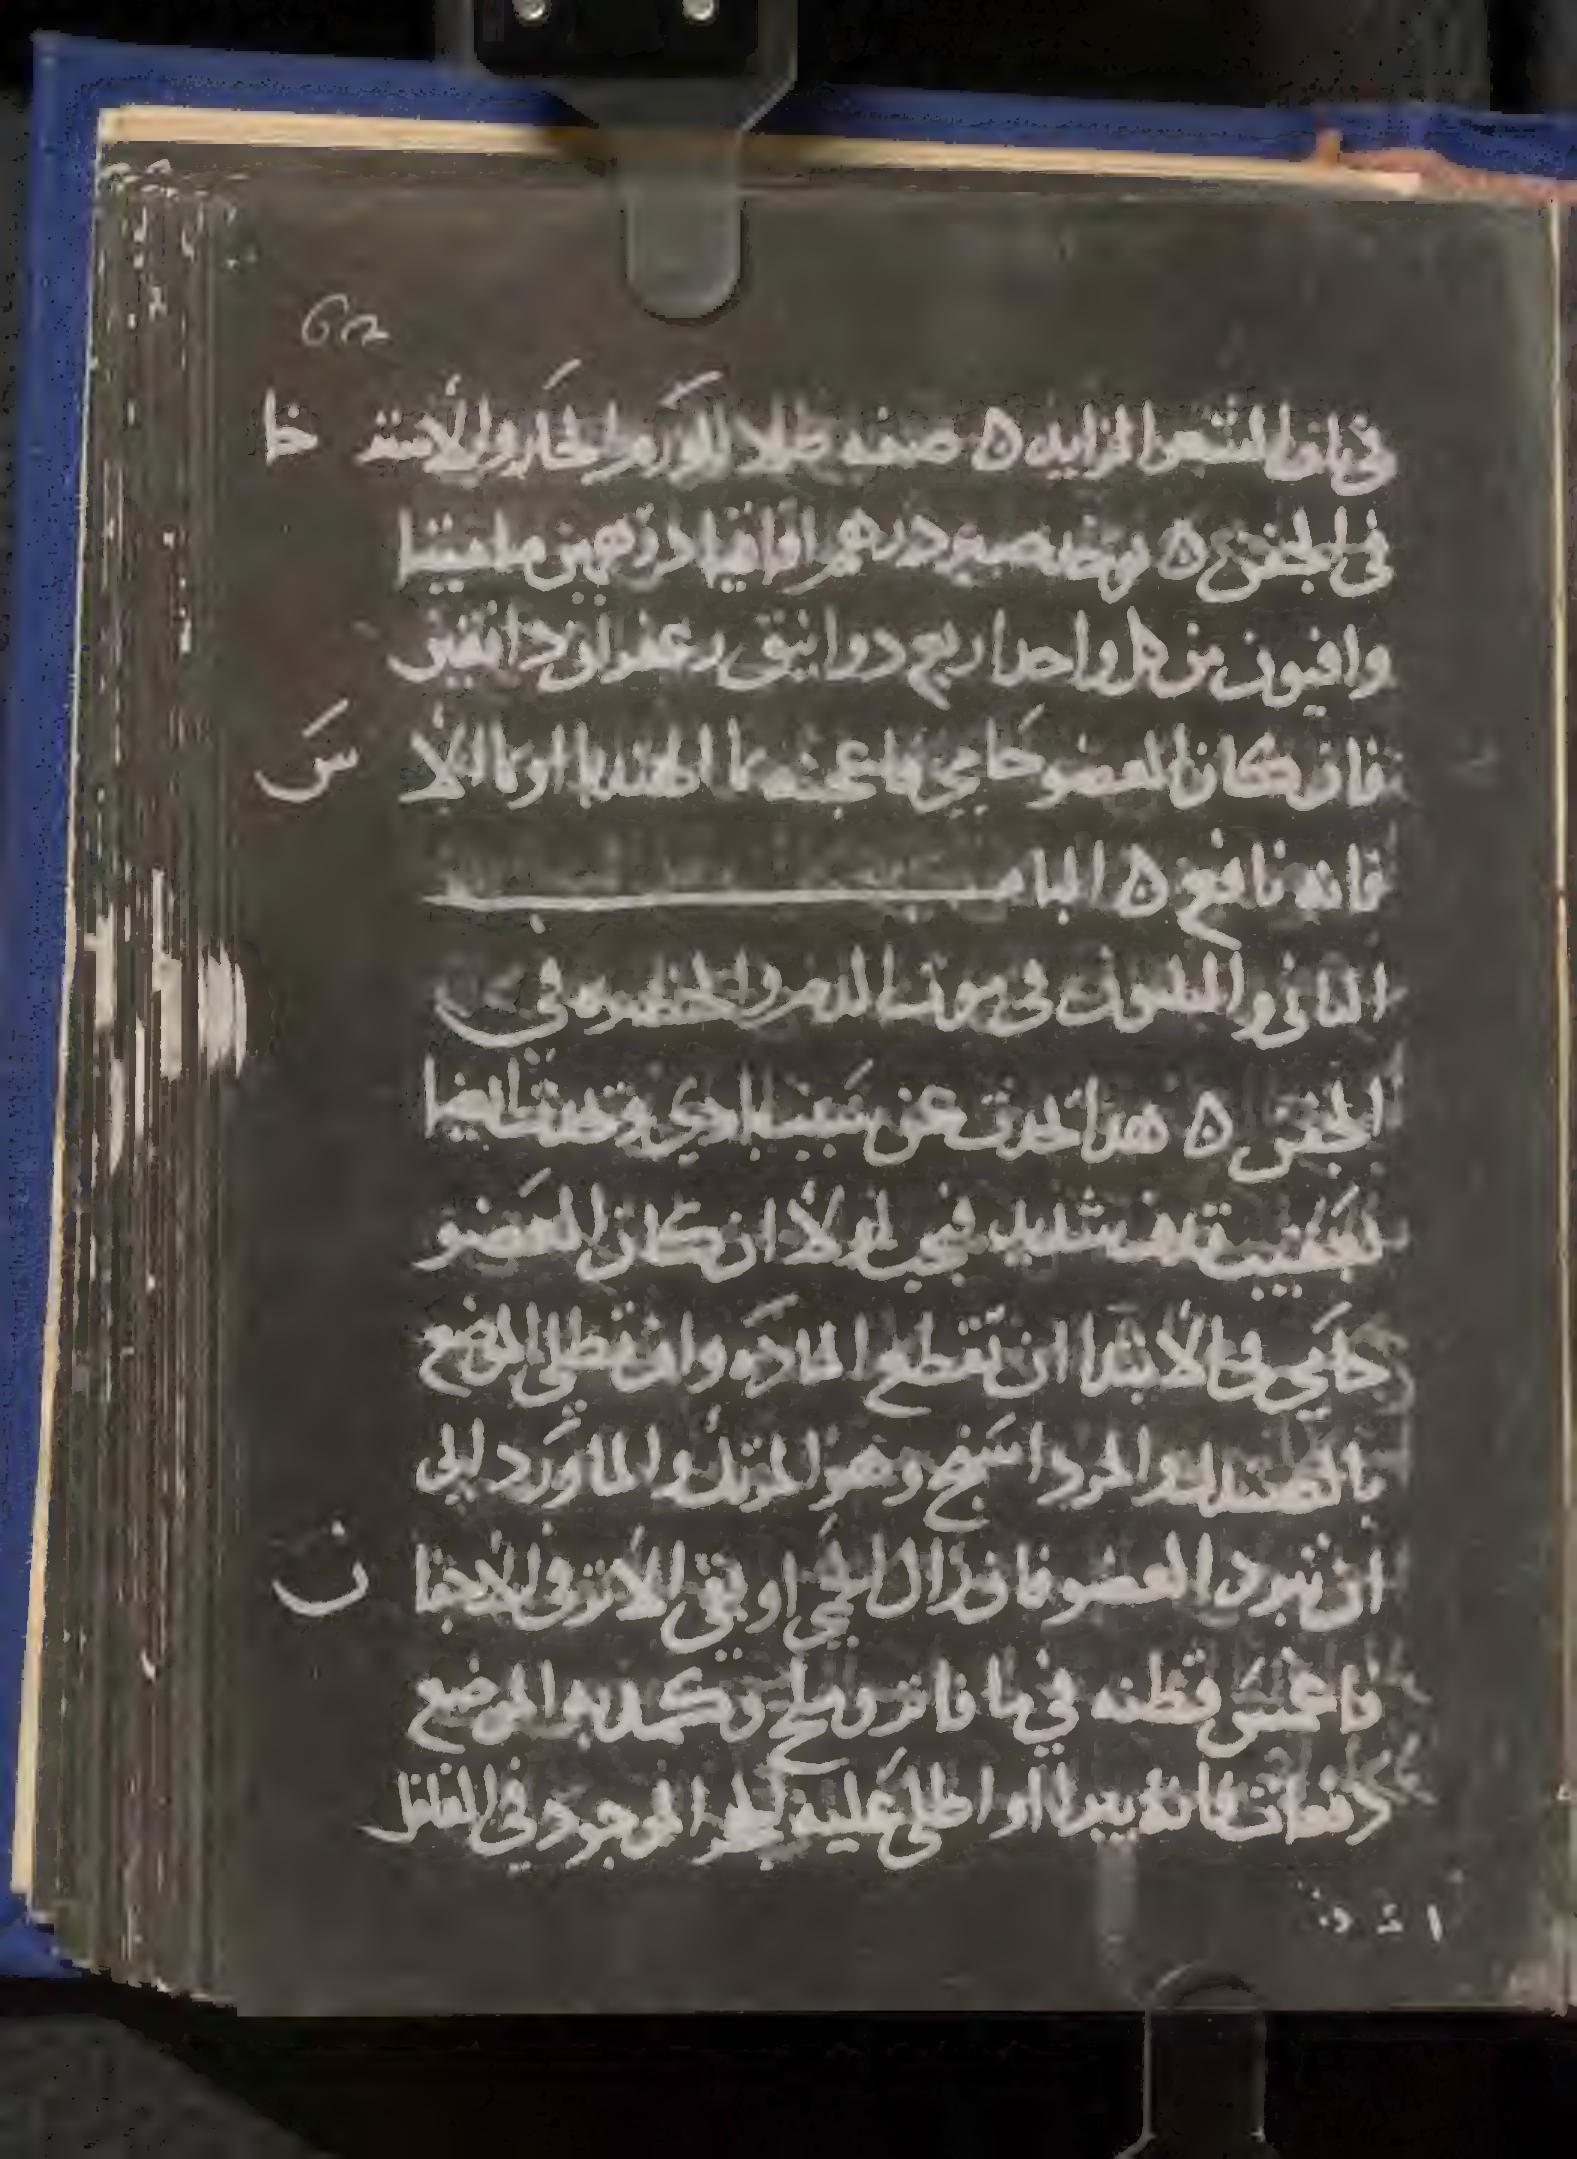 62
في باب الشعر الزايد ه صفه طلا للورم الحار والاسترخا
في الجفن ه يوخد صبر درهم اقاقيا درهمين ماميثا
وافيون من كل واحد اربع دوانيق زعفران دانقين
فان كان العضو حامي فاعجنه بما الهندبا او بما الاس
فانه نافع ه الباب
الثاني والثلثون في موت الدم والخضره في
الجفن ه هدا تحدث عن سبب بادي وتحدث ايضا
بعقيب قدف شديد فيجب اولا ان كان العضو
حامي في الابتدا ان تقطع الماده وان تطلي الموضع
بالصندل والمرداسنج وهو المرتك والماورد الى
ان تبرد العضو فان زال الحمي او بقي الاثر في الاجفان
فاغمس قطنه في ما فاتر وملح وتكمد به الموضع
دفعات فانه يبرا او اطلي عليه الحجر الموجود في الفلفل